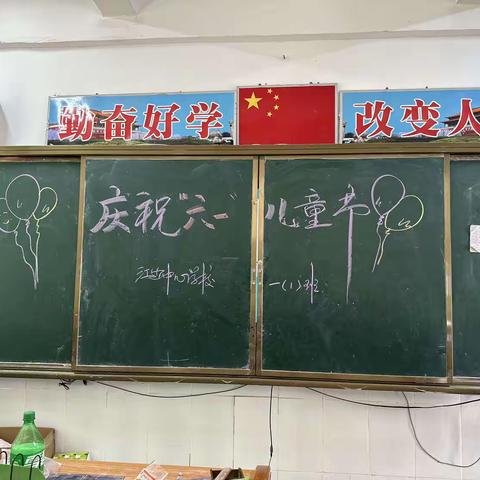 勤奋好学
改变人
庆祝"六一"儿童节
中心学校
一(1)班